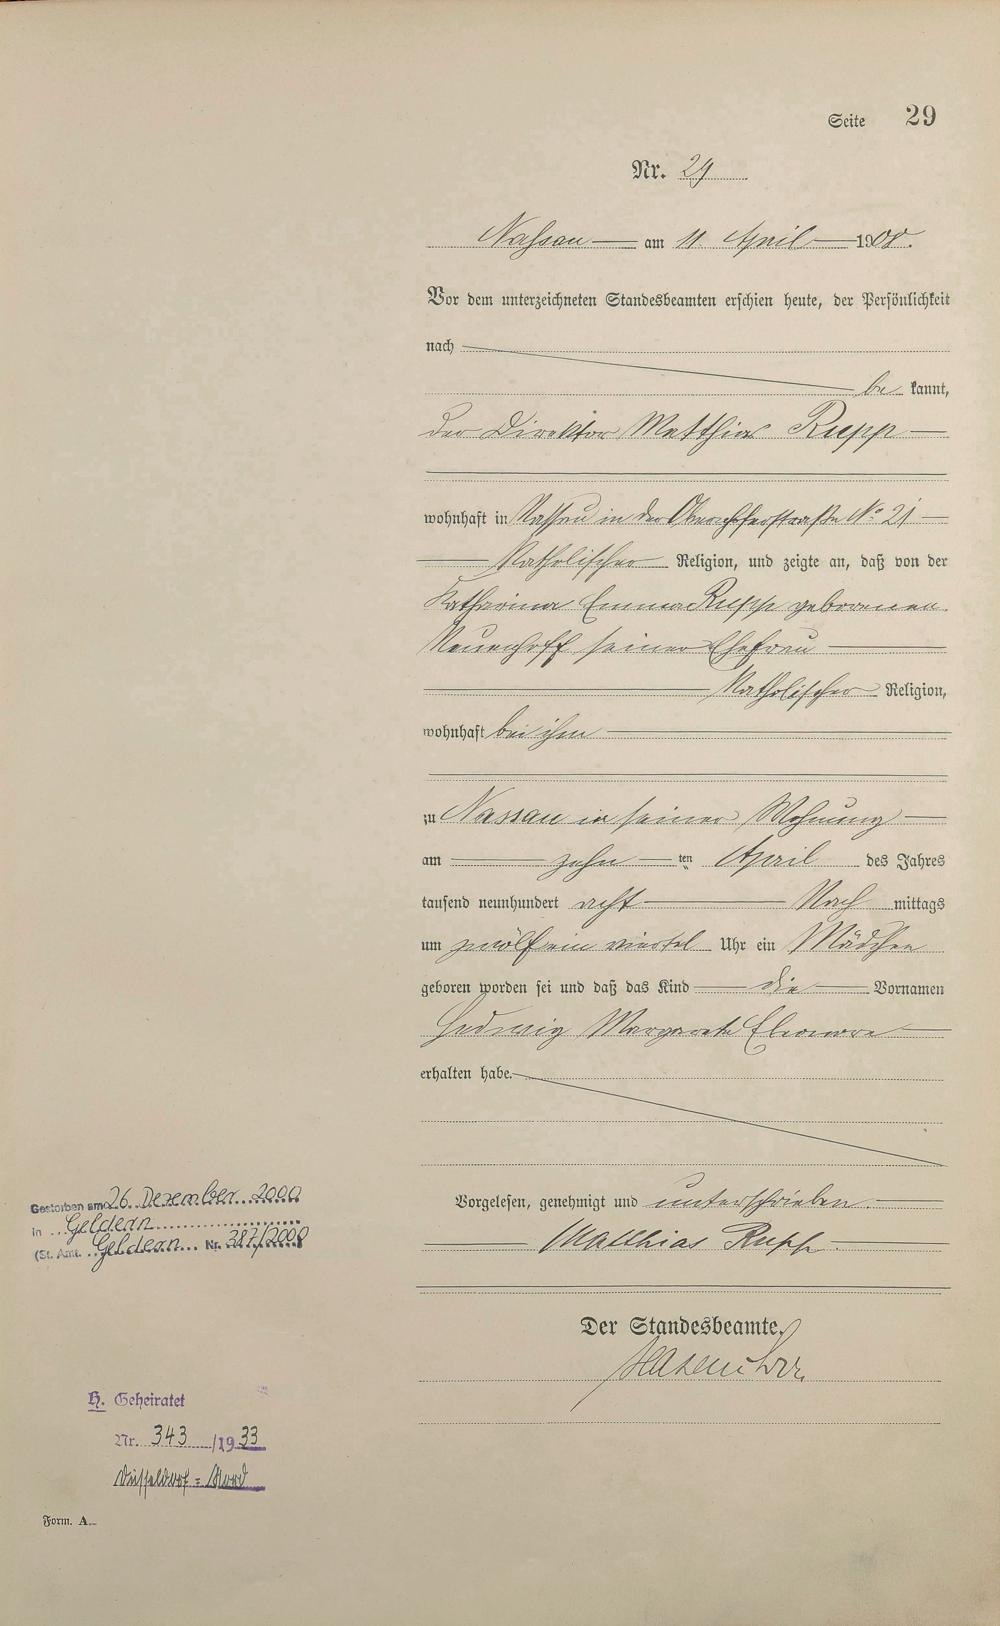 Seite 29
Nr. 29
Nassau am 11. April 1908.
Vor dem unterzeichneten Standesbeamten erschien heute, der Persönlichkeit
nach
be kannt,
der Direktor Matthias Rupp
wohnhaft in Nassau in der Obernhoferstraße No 21
Katholischer Religion, und zeigte an, daß von der
Katharina Emma Rupp geborenen
Neuenhoff seiner Ehefrau
Katholischer Religion,
wohnhaft bei ihm
zu Nassau in seiner Wohnung
am zehn ten April des Jahres
tausend neunhundert acht Nach mittags
um zwölf ein viertel Uhr ein Mädchen
geboren worden sei und daß das Kind die Vornamen
Hedwig Margarete Eleonore
erhalten habe.
Vorgelesen, genehmigt und unterschrieben.
Matthias Rupp
Der Standesbeamte.
Gestorben am 26. Dezember 2000
in Geldern
(St. Amt. Geldern Nr. 387/2000
H. Geheiratet
Nr. 343 /1933
Düsseldorf=Nord
Form. A.